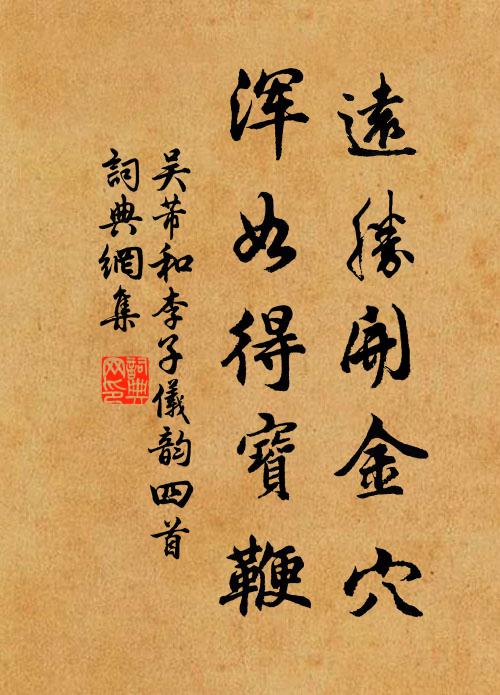 遠勝開金穴
渾如得寶鞭
吴芾和李子儀韵四首
詞典網集
詞典網印